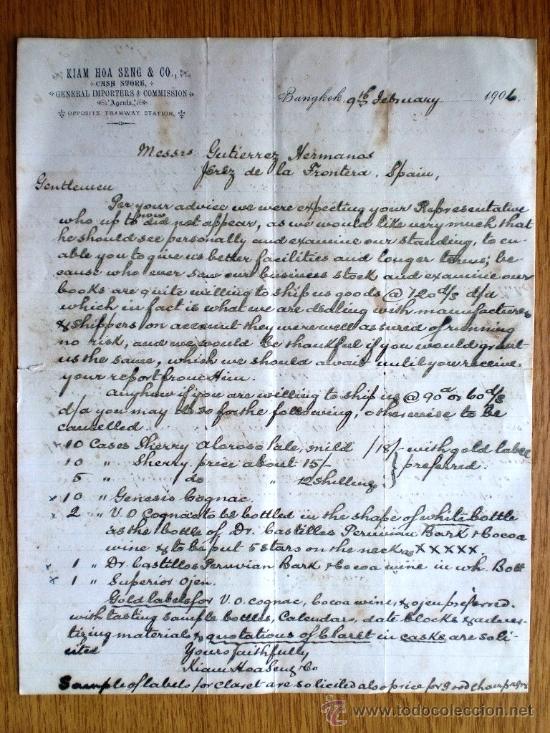 KIAM HOA SENG & CO.,
CASH STORE,
GENERAL IMPORTERS & COMMISSION
Agents,
OPPOSITE TRAMWAY STATION.
Bangkok 9th February 1906.
Messrs Gutierrez Hermanos
Jérez de la Frontera, Spain,
Gentlemen
Per your advice we were expecting your Representative
who up to now did not appear, as we would like very much that
he should see personally and examine our standing, to en-
able you to give us better facilities and longer terms; be
cause who ever saw our business stock and examine our
books are quite willing to ship us goods @ 120 d/s d/a
which in fact is what we are dealing with manufacturers
& shippers on account they were well assured of running
no risk, and we would be thankful if you would grant
us the same, which we should await until you receive
your report from Him.
Anyhow if you are willing to ship us @ 90 or 60 d/s
d/a you may do so for the following, otherwise to be
cancelled.
10 Cases Sherry Oloroso Pale, mild /18/- with gold label
10 " Sherry price about 15/- preferred.
5 " do " 12 shilling
x 10 " Genesio Cognac
x 2 " V.O Cognac to be bottled in the shape of white bottle
as the bottle of Dr. Castilles Peruvian Bark & Cocoa
wine & to be put 5 stars on the neck as XXXXX.
x 1 " Dr. Castilles Peruvian Bark & Cocoa wine in wh. Bott
x 1 " Superior Ojen.
Gold labels for V.O. cognac, Cocoa wine, & ojen preferred.
with tasting sample bottles, Calendars, date blocks & adver-
tizing materials & quotations of Claret in casks are soli-
cited
Yours faithfully
Kiam Hoa Seng & Co
Sample of labels for claret are solicited also price for
todocoleccion
http://www.todocoleccion.net